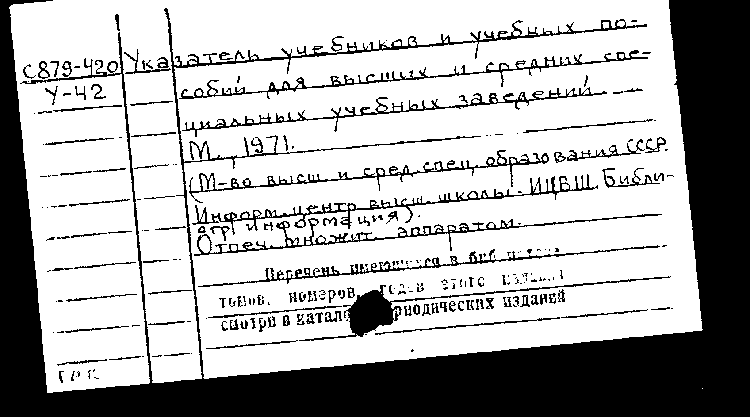 С879-420 Указатель учебников и учебных по-
У-42 собий для высших и средних спе-
циальных учебных заведений.
М., 1971.
(М-во высш. и сред. спец. образования СССР.
Информ. центр высш. школы. ИЦВШ. Библи-
огр. информация).
Отпеч. множит. аппаратом.
Перечень имеющихся в библиотеке
томов, номеров, годов этого издания
смотри в катало периодических изданий